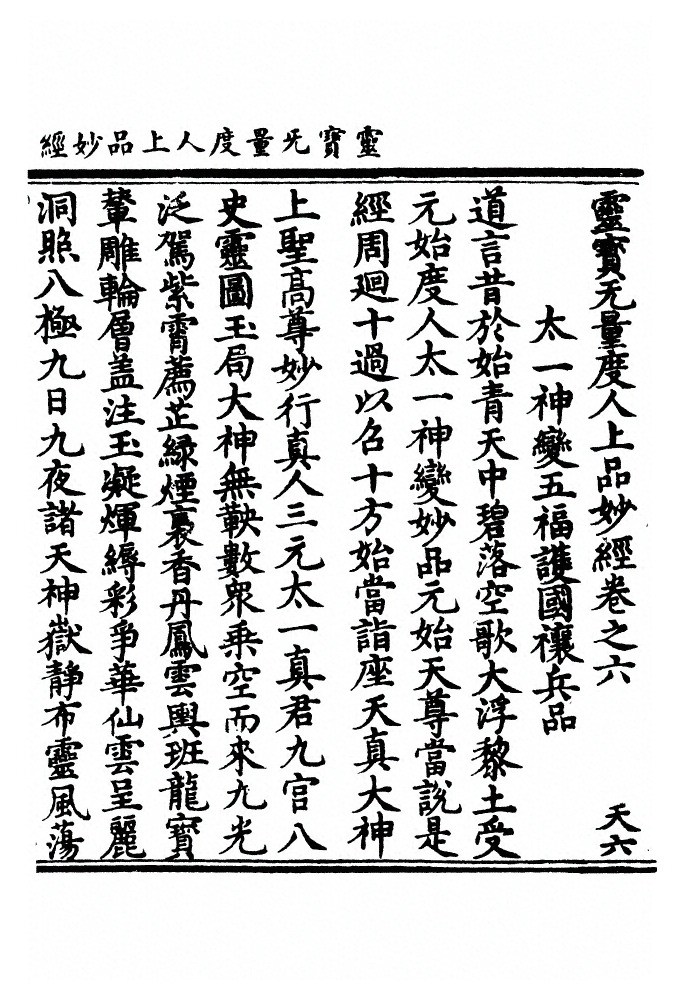 靈寶无量度人上品妙經
靈寶无量度人上品妙經卷之六 天六
太一神變五福護國禳兵品
道言昔於始青天中碧落空歌大浮黎土受
元始度人太一神變妙品元始天尊當說是
經周廻十過以召十方始當詣座天真大神
上聖高尊妙行真人三元太一真君九宫八
史靈圖玉局大神無鞅數眾乘空而來九光
泛駕紫霄薦芷綠煙裛香丹鳳雲輿班龍寶
輦雕輪層盖注玉凝煇縟彩爭華仙雲呈麗
洞照八極九日九夜諸天神嶽靜布靈風蕩